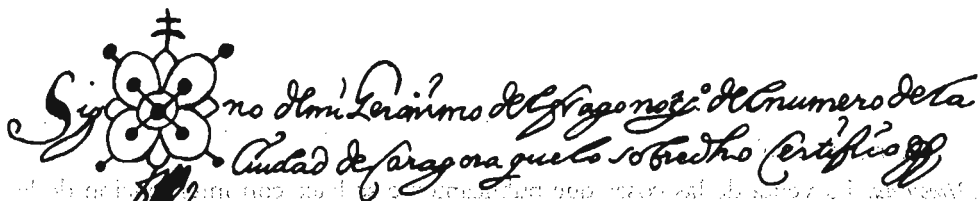 Signo de mi Geronimo del frago not.º del numero de la
Ciudad de Caragoça que lo sobredho Certifico